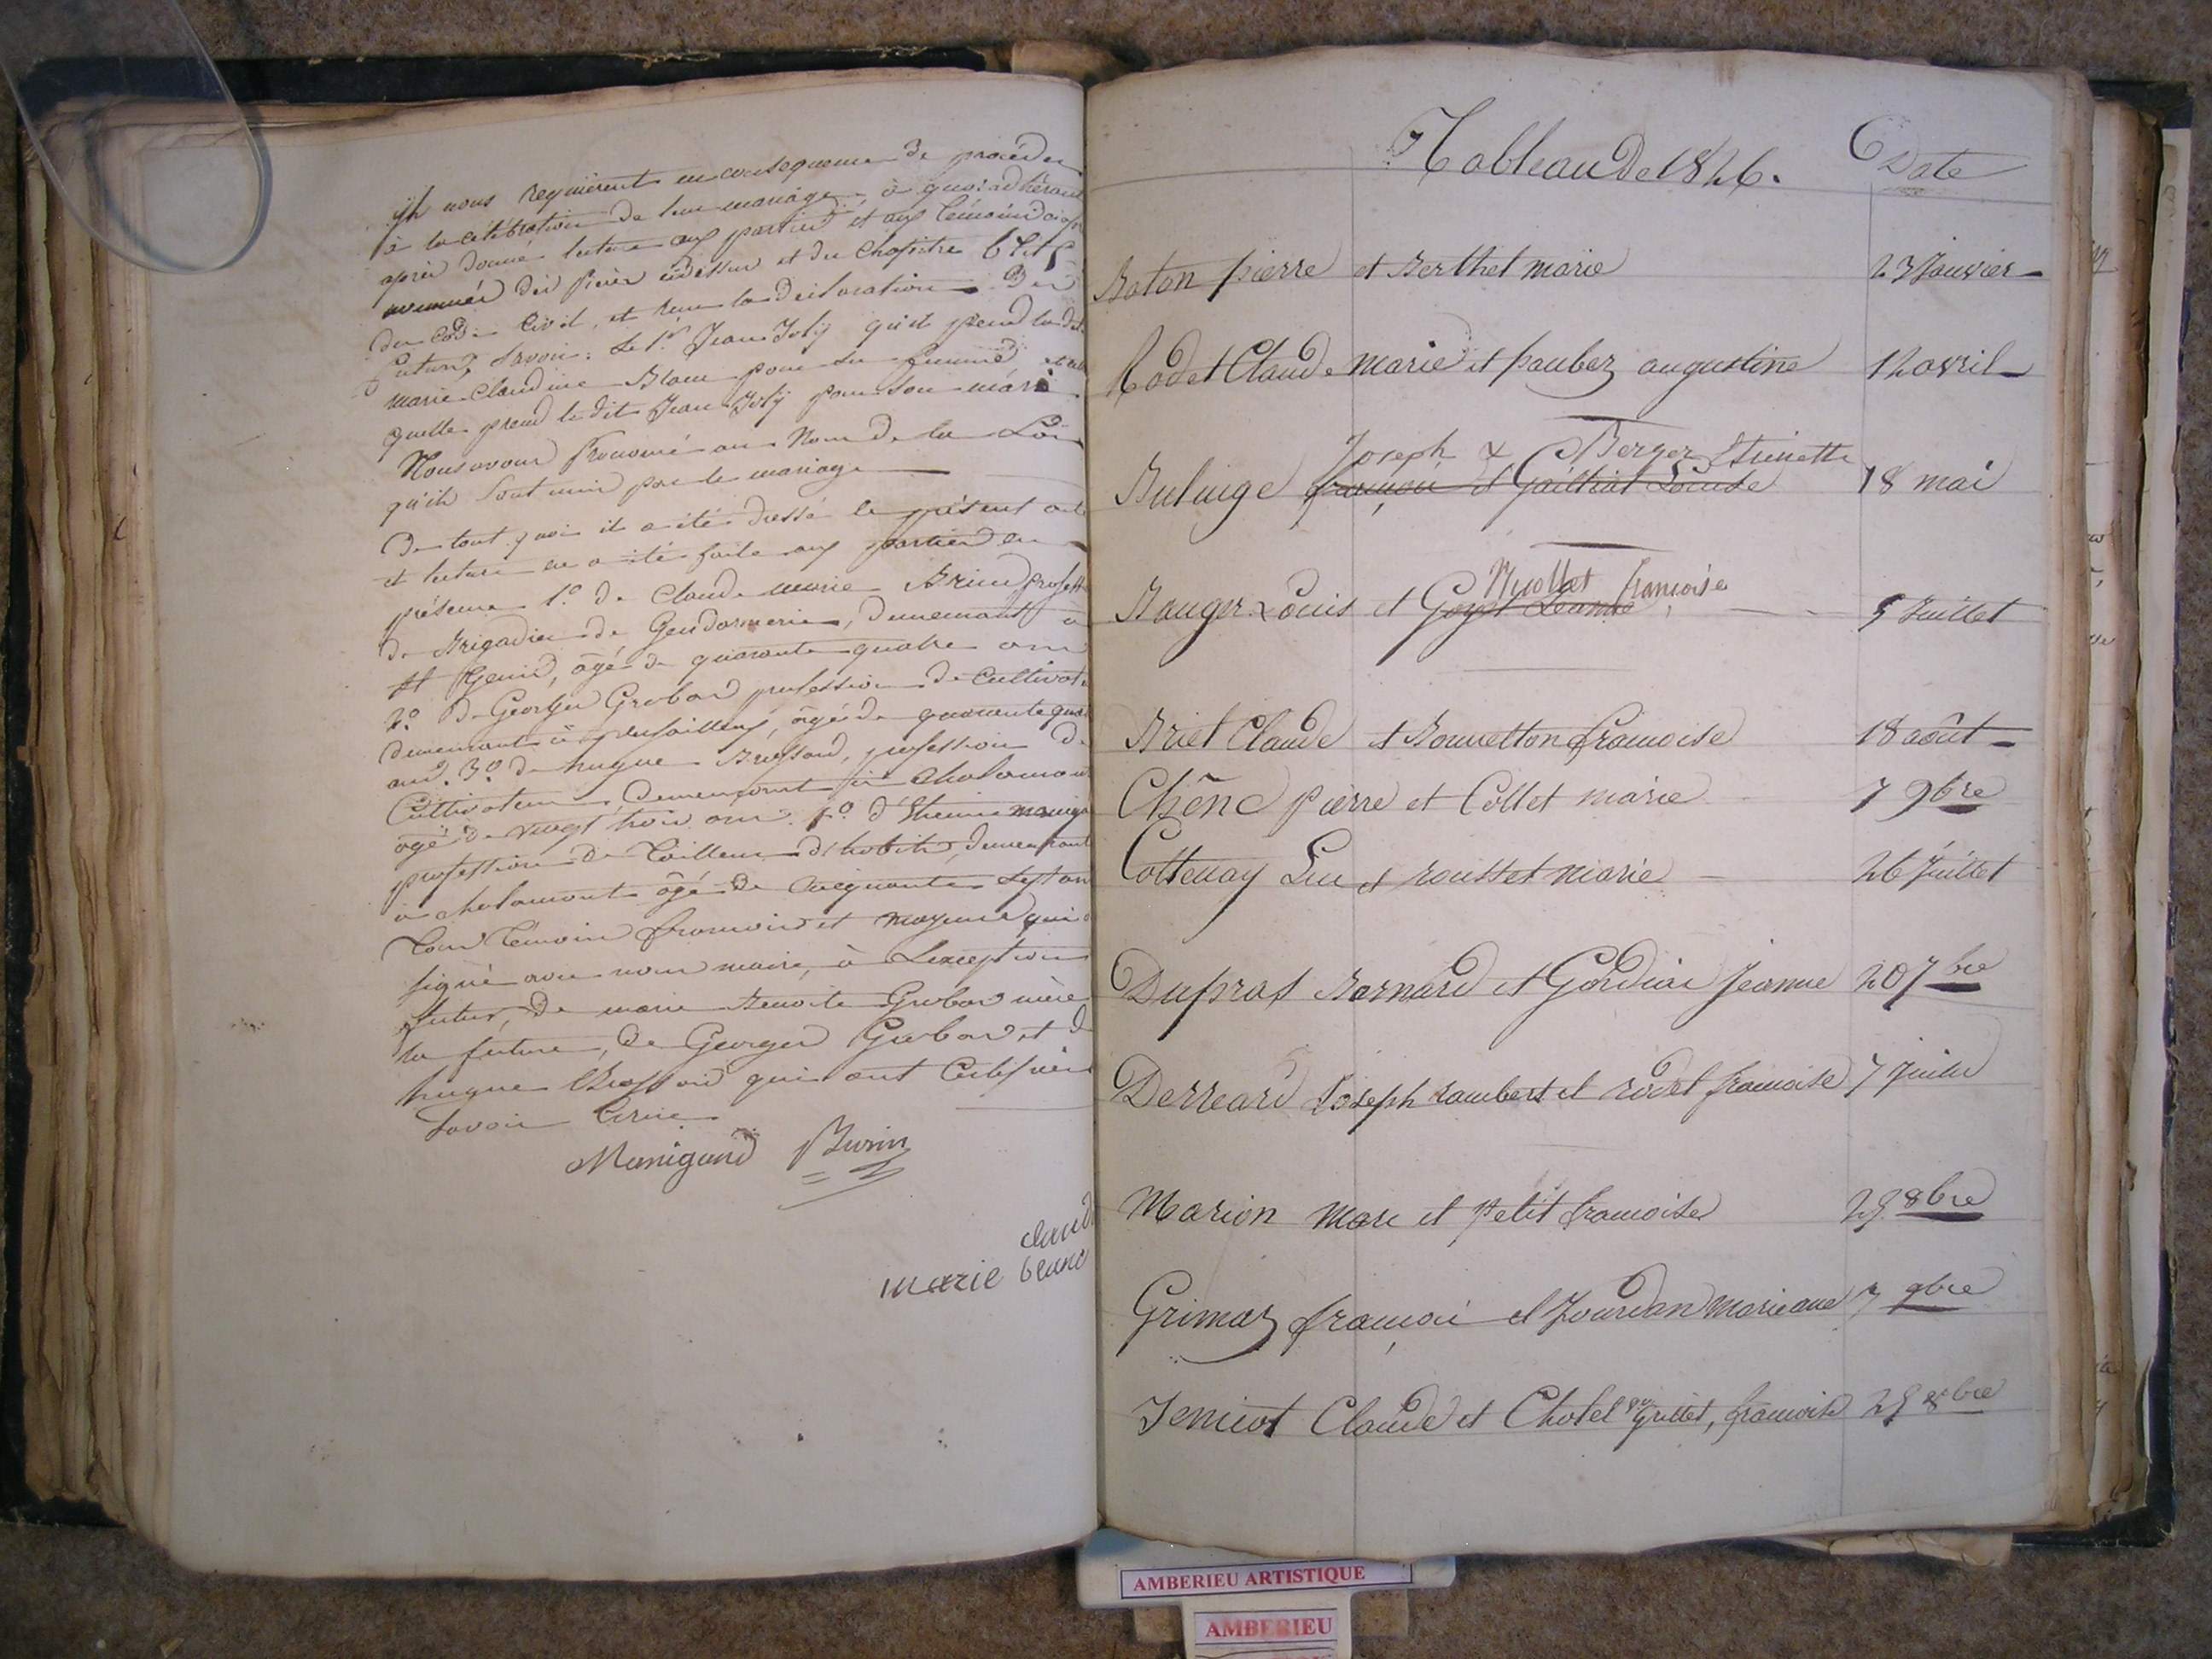 ils nous requièrent en conséquence de procéder
à la célébration de leur mariage, à quoi adhérant
après donné lecture aux parties et aux témoins
des pièces cidessus et du Chapitre 6 tit 5
du Code Civil, et reçu la déclaration des
futurs, Savoir: Le 1er Jean Joly qu'il prend la dite
marie Claudine Blanc pour sa femme
quelle prend le dit Jean Joly pour son mari
Nous avons Prononcé au Nom de la Loi
qu'ils sont unis par le mariage
De tout quoi il a été dressé le présent acte
et lecture en a été faite aux parties en
présence 1.o de Claude marie profess
de Brigadier de Gendarmerie, demeurant à
St Genis, âgé de quarante quatre ans
2.o De Georges Grobon profession de Cultivat
demeurant à âgé de quarante
ans. 3.o de hugue Bressand, profession de
Cultivateur, Demeurant à Chalamont
âgé de vingt trois ans. 4.o d'Etienne manigan
profession de tailleur d'habits, demeurant
à chalamont âgé de Cinquante Sept ans
tous témoins français et majeurs qui
signé avec nous maire, à L'exception
futur, de marie Benoite Grobon mère
la future, de Georges Grobon et d
hugue Bressand qui ont
Savoir Ecrire
Manigand Burin
claud
marie blanc
Tableau De 1826. Date
Boton pierre et Berthet marie 23 Janvier
Rodet Claude Marie et paubez augustine 12 avril
Joseph & Berger Etiennette
Bulinge françois et Gailliat Louise 18 mai
Nyollet françoise
Bauger Louis et Goyet Jeanne 5 Juillet
Briet Claude et Bouvetton françoise 18 août
Chêne pierre et Collet marie 7 9bre
Cottenay Luc et rousset marie 26 Juillet
Duprat Bernard et Gordiat Jeanne 20 7bre
Derreard Joseph rambert et rodet françoise 7 Juin
Marion Marc et Petit françoise 25 8bre
Grimaz françois et Jourdan Marieane 7 9bre
Jeniot Claude et Cholet ou Grillet, françoise 25 8bre
AMBERIEU ARTISTIQUE
AMBERIEU